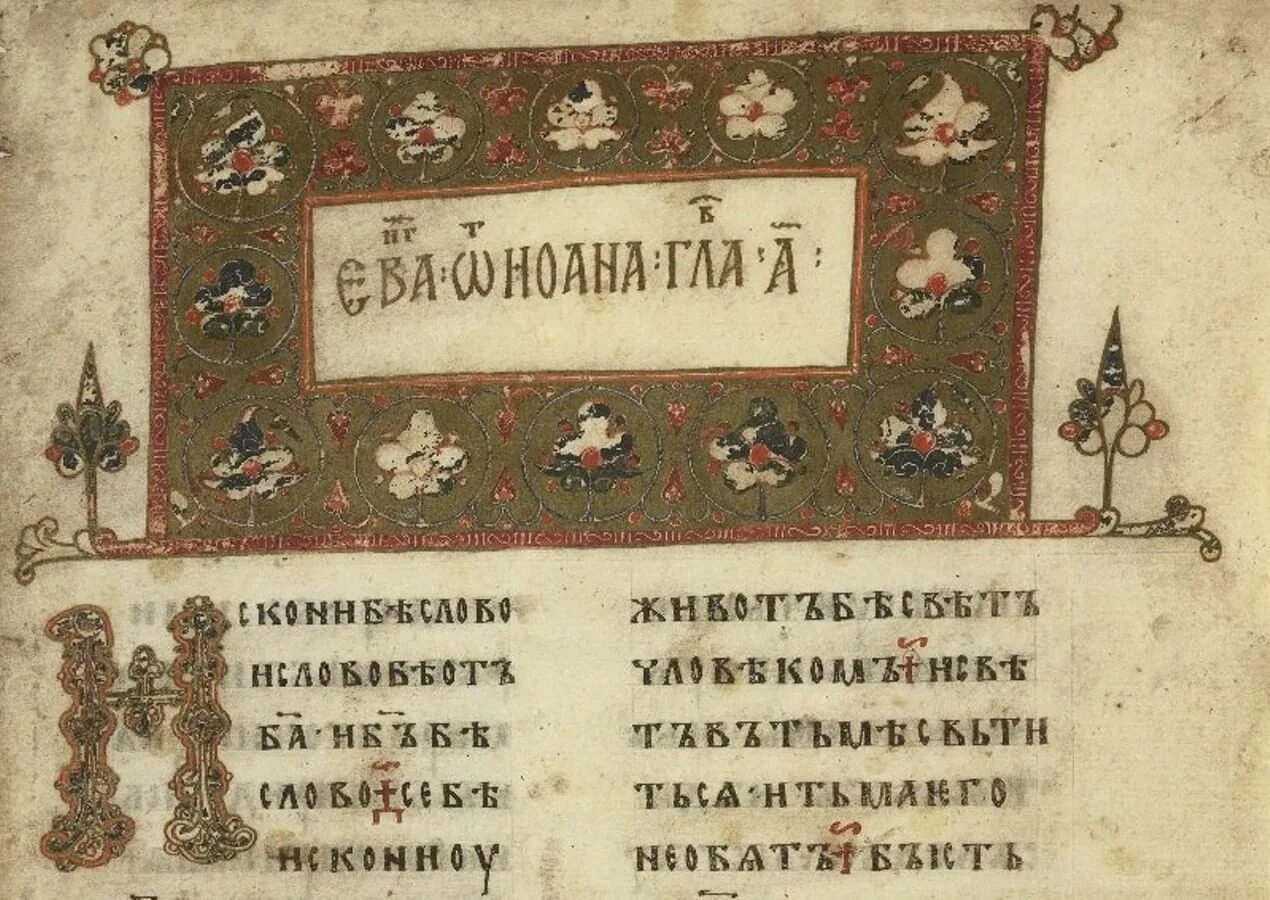 ЕВАⷩ҇ⷢ:ѿИОАНА:ГЛАⷡ҇·А҃:
ИСКОНИБѢСЛОВО
ИСЛОВОБѢОТЪ
БА҃·ИБЪ҃БѢ
СЛОВО·СЕБѢ
ИСКОНИОУ
ЖИВОТЪБѢСВѢТЪ
ЧЛОВѢКОМЪ·ИСВѢ
ТЪВЪТЬМѢСВЬТИ
ТЬСѦ·ИТЬМАѤГО
НЕОБѦТЪ·БЪІСТЬ